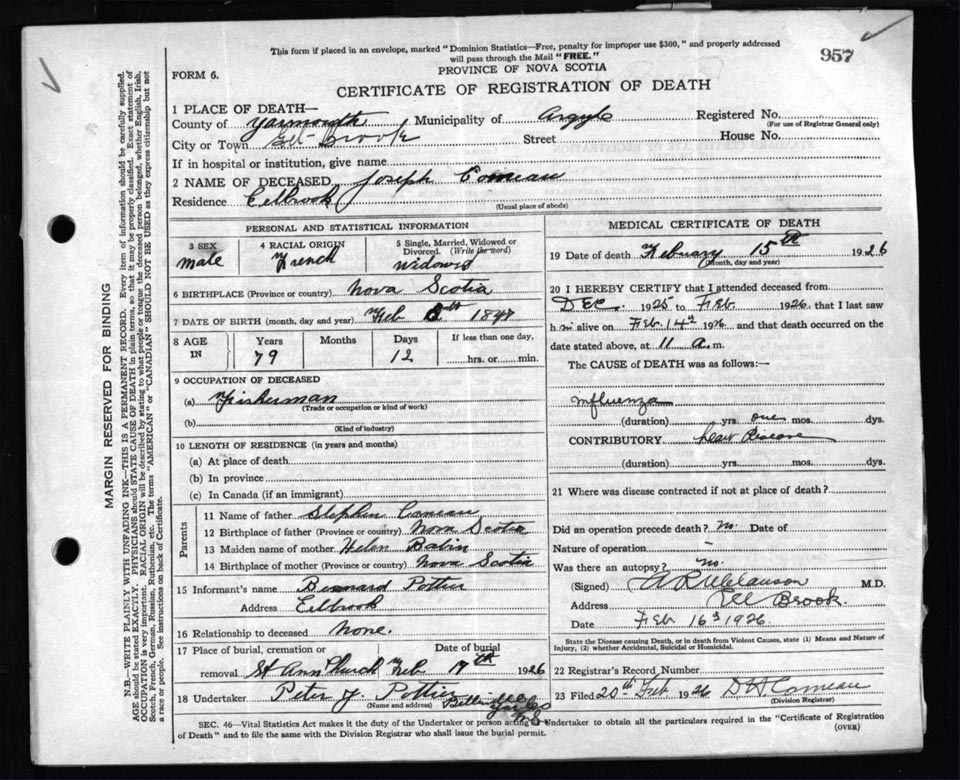 This form if placed in an envelope, marked "Dominion Statistics—Free, penalty for improper use $300," and properly addressed
will pass through the Mail "FREE."
957
PROVINCE OF NOVA SCOTIA
FORM 6.
CERTIFICATE OF REGISTRATION OF DEATH
1 PLACE OF DEATH—
County of Yarmouth Municipality of Argyle Registered No.
(For use of Registrar General only)
City or Town Eel-Brook Street House No.
If in hospital or institution, give name
2 NAME OF DECEASED Joseph Comeau
Residence Eelbrook
(Usual place of abode)
PERSONAL AND STATISTICAL INFORMATION
3 SEX Male
4 RACIAL ORIGIN French
5 Single, Married, Widowed or Divorced. (Write the word) Widowed
6 BIRTHPLACE (Province or country) Nova Scotia
7 DATE OF BIRTH (month, day and year) Feb
8 AGE IN Years 79 Months Days 12 If less than one day, hrs. or min.
9 OCCUPATION OF DECEASED
(a) Fisherman
(Trade or occupation or kind of work)
(b)
(Kind of industry)
10 LENGTH OF RESIDENCE (in years and months)
(a) At place of death
(b) In province
(c) In Canada (if an immigrant)
Parents
11 Name of father Stephen Comeau
12 Birthplace of father (Province or country) Nova Scotia
13 Maiden name of mother Helen Babin
14 Birthplace of mother (Province or country) Nova Scotia
15 Informant's name Bernard Pottier
Address Eelbrook
16 Relationship to deceased None.
17 Place of burial, cremation or removal St Ann Church Date of burial Feb 17th 1926
18 Undertaker Peter J Pottier
(Name and address)
MEDICAL CERTIFICATE OF DEATH
19 Date of death February 15th 1926
(Month, day and year)
20 I HEREBY CERTIFY that I attended deceased from
Dec. 1925 to Feb. 1926. that I last saw
him alive on Feb. 14 1926 and that death occurred on the
date stated above, at 11 a.m.
The CAUSE of DEATH was as follows:—
Influenza
(duration) yrs. one mos. dys.
CONTRIBUTORY Heart Disease
(duration) yrs. mos. dys.
21 Where was disease contracted if not at place of death?
Did an operation precede death? No. Date of
Nature of operation –
Was there an autopsy? No.
(Signed) M.D.
Address Eel Brook.
Date Feb 16 1926.
State the Disease causing Death, or in death from Violent Causes, state (1) Means and Nature of
Injury, (2) whether Accidental, Suicidal or Homicidal.
22 Registrar's Record Number
23 Filed 20th Feb 1926 Comeau
(Division Registrar)
SEC. 46—Vital Statistics Act makes it the duty of the Undertaker or person acting as Undertaker to obtain all the particulars required in the "Certificate of Registration
of Death" and to file the same with the Division Registrar who shall issue the burial permit.
(OVER)
MARGIN RESERVED FOR BINDING
N.B.—WRITE PLAINLY WITH UNFADING INK—THIS IS A PERMANENT RECORD. Every item of information should be carefully supplied.
AGE should be stated EXACTLY. PHYSICIANS should STATE CAUSE OF DEATH in plain terms, so that it may be properly classified. Exact statement of
OCCUPATION is very important. RACIAL ORIGIN will be described by stating to what people or tongue the deceased person belonged, whether English, Irish,
Scotch, French, German, Russian, Ruthenian, etc. The terms "AMERICAN" or "CANADIAN" SHOULD NOT BE USED as they express citizenship but not
a race or people. See instructions on back of Certificate.